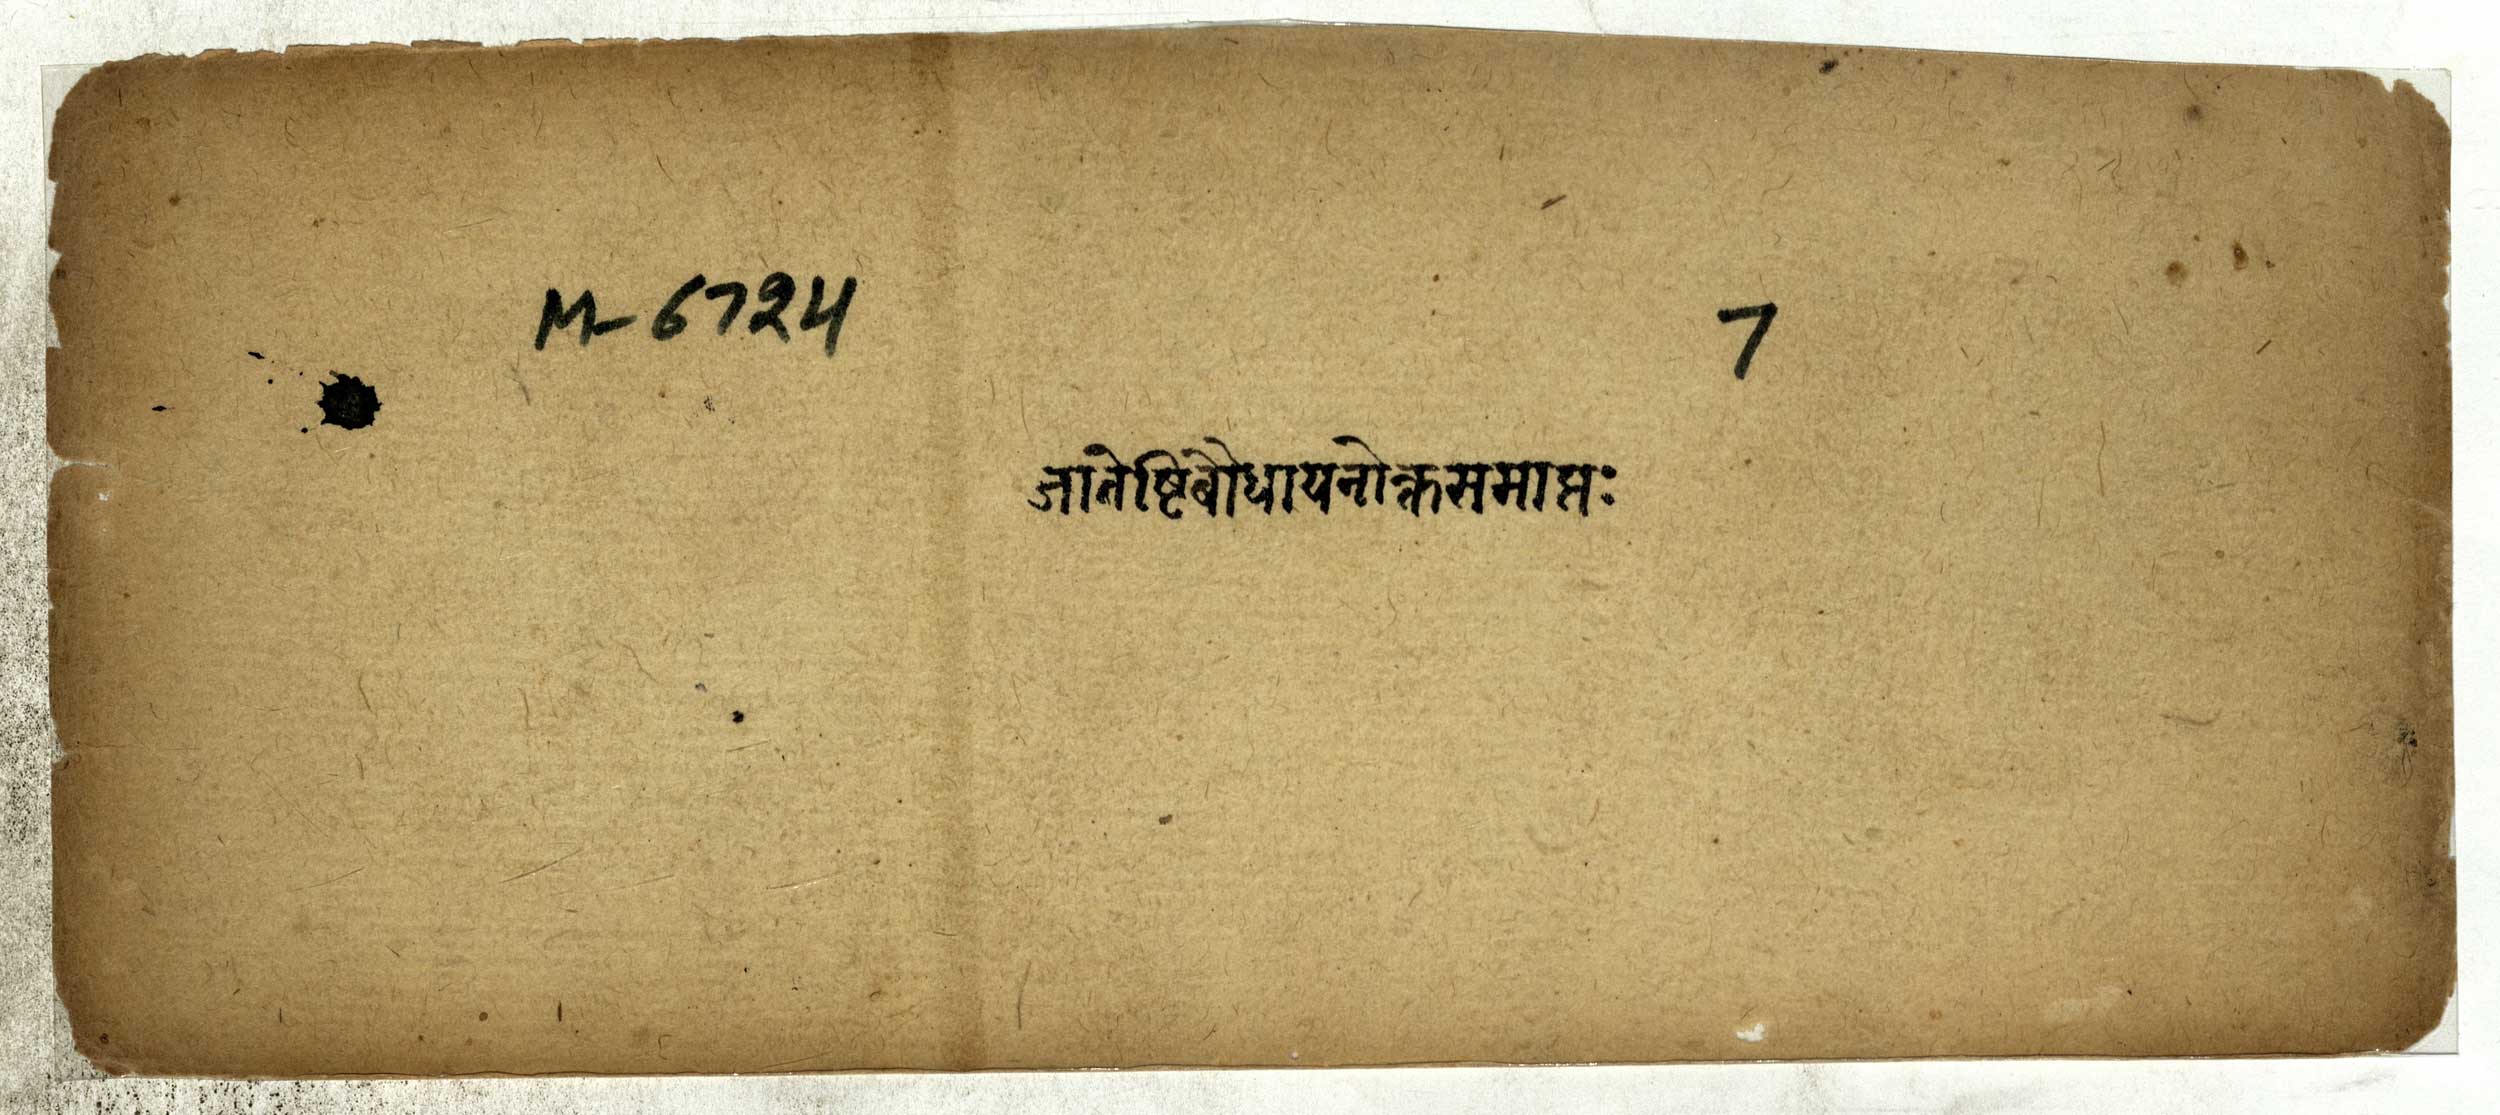 M-6724
7
जातेष्टिबौधायनोक्तसमाप्तः